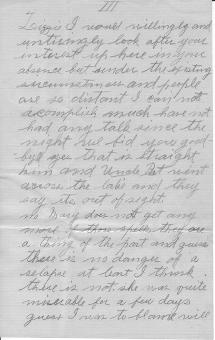 III
Lizzie I would willingly and
untiringly look after your
interest up here in your
absence but under the existing
circumstances and people
are so distant I can not
acomplish much have not
had any talk since the
night we bid you good
bye yes that is straight
him and Uncle Pat went
across the lake and they
say its out of sight.
no Mary does not get any
more of those spells they are
a thing of the past and guess
there is no danger of a
relapse at least I think
there is not she was quite
miserable for a few days
guess I was to blame will